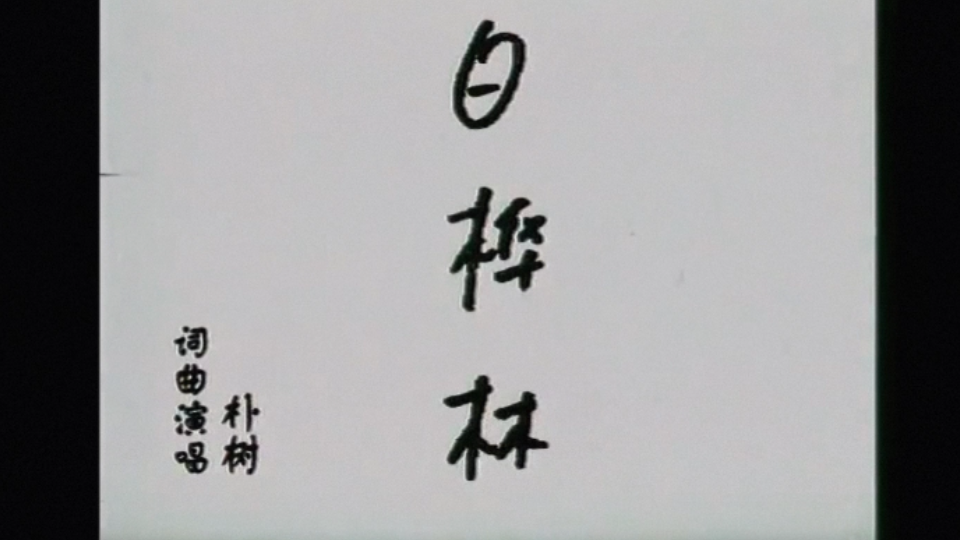 白桦林
词曲演唱
朴树